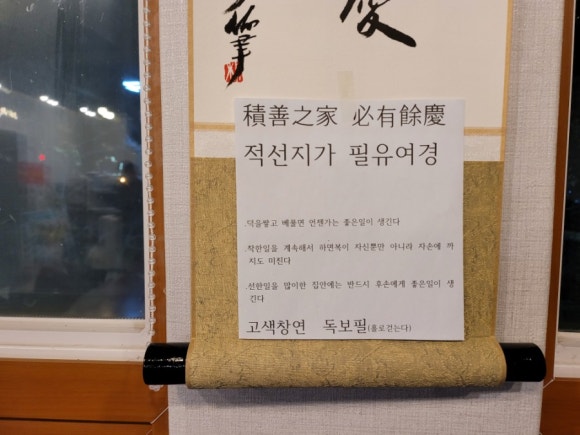 慶
積善之家 必有餘慶
적선지가 필유여경
.덕을쌓고 베풀면 언젠가는 좋은일이 생긴다
.착한일을 계속해서 하면복이 자신뿐만 아니라 자손에 까
지도 미친다
.선한일을 많이한 집안에는 반드시 후손에게 좋은일이 생
긴다
고색창연 독보필(홀로걷는다)